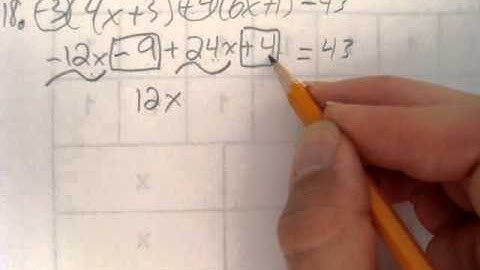 18. -3(4x+3)+4(6x+1)=43
-12x-9+24x+4=43
12x
x
x